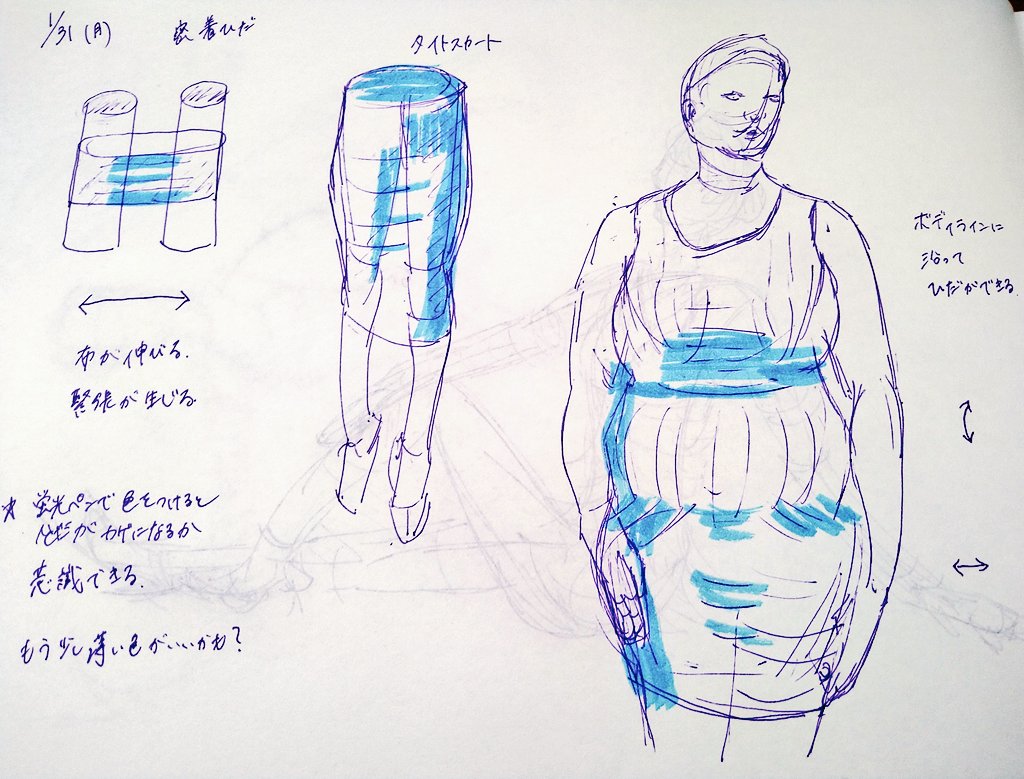 1/31 (月)
密着ひだ
タイトスカート
布が伸びる.
緊張が生じる.
ボディラインに
沿って
ひだができる.
* 蛍光ペンで色をつけると
どこがカゲになるか
意識できる.
もう少し薄い色がいいかも?